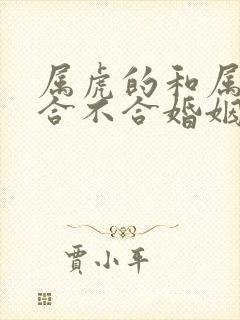 属虎的和属
合不合婚姻
贾小平